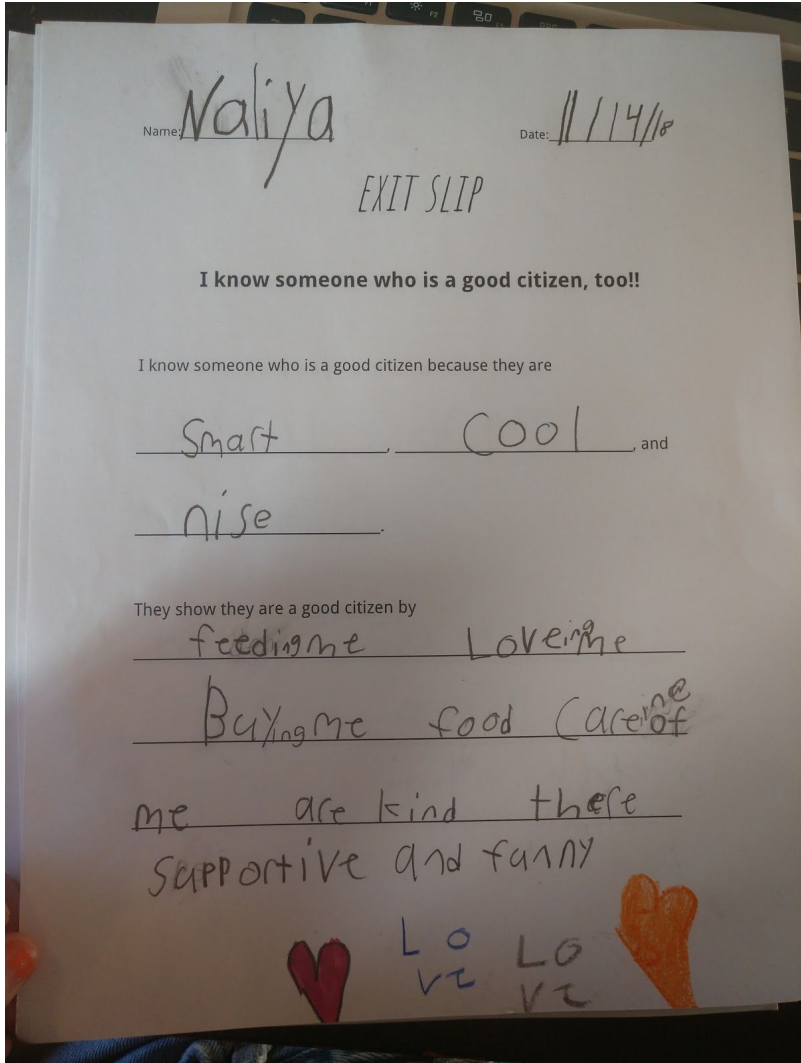 Name: Naliya Date: 11/14/18
EXIT SLIP
I know someone who is a good citizen, too!!
I know someone who is a good citizen because they are
Smart, Cool, and
nise.
They show they are a good citizen by
feedingme Loveingme
Buyingme food Careing of
me are kind there
Supportive and funny
LO LO
ve ve